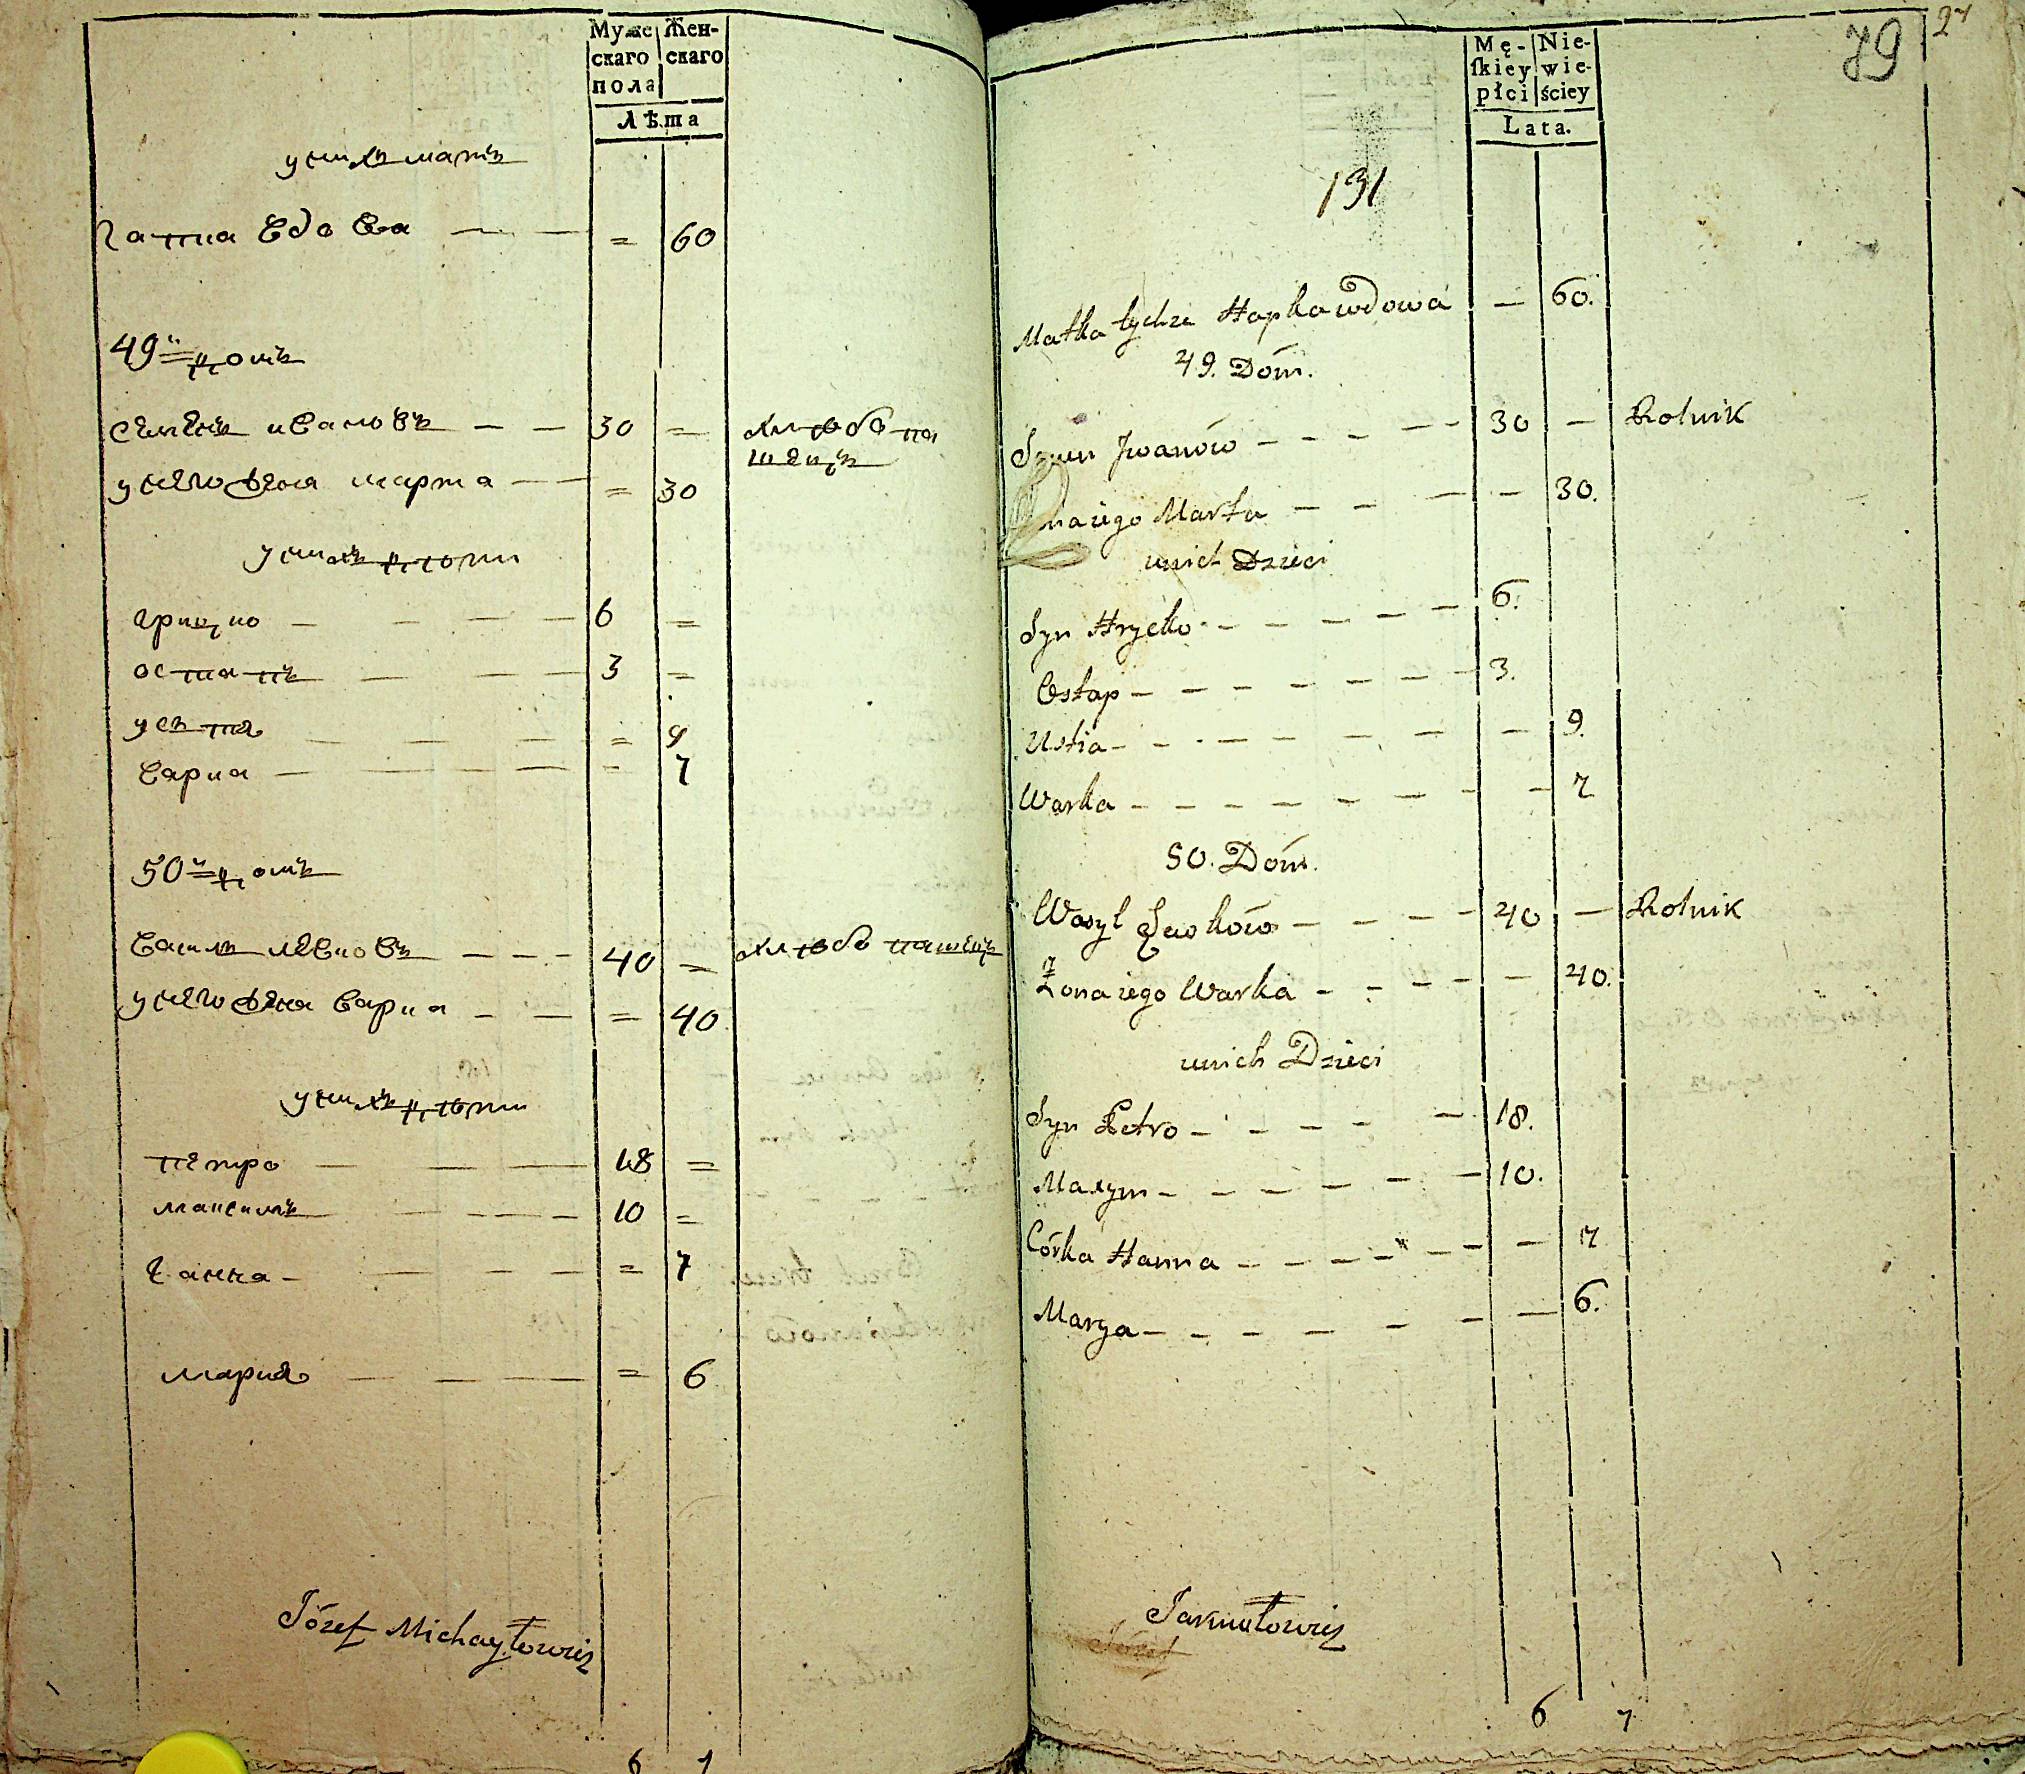 Муже
скаго
пола
Жен-
скаго
Лѣта
у нихъ мать
гапка вдова — — = 60
49й домъ
семенъ ивановъ — — 30 = хлѣбопа
шецъ
у него жена марта — — = 30
у нихъ дѣти
грицко — — — — 6 =
остапъ — — — 3 =
устя — — — — = 9
варка — — — — = 7
50й домъ
василь левковъ — — — 40 = хлѣбопашецъ
у него жена варка — — = 40
у нихъ дѣти
петро — — — 18 =
максимъ — — — 10 =
ганна — — — — = 7
мария — — — — = 6
Józef Michayłowicz
6 7
79
27
Mę-
skiey
płci
Nie-
wie-
ściey
Lata.
131
Matka tychże Hapka wdowa — 60.
49. Dom.
Semen Jwanów — — — — — 30 — Rolnik
Żona iego Marta — — — — 30.
u nich Dzieci
Syn Hryćko — — — — — 6.
Ostap — — — — — — — 3.
Ustia — — — — — — — 9.
Warka — — — — — — — — 7
50. Dom.
Wasyl Lewków — — — — 40 — Rolnik
Żona iego Warka — — — — — 40.
u nich Dzieci
Syn Petro — — — — — 18.
Maxym — — — — — — 10.
Córka Hanna — — — — — — — 7
Marya — — — — — — — 6.
Jarmułowicz
Józef
6 7